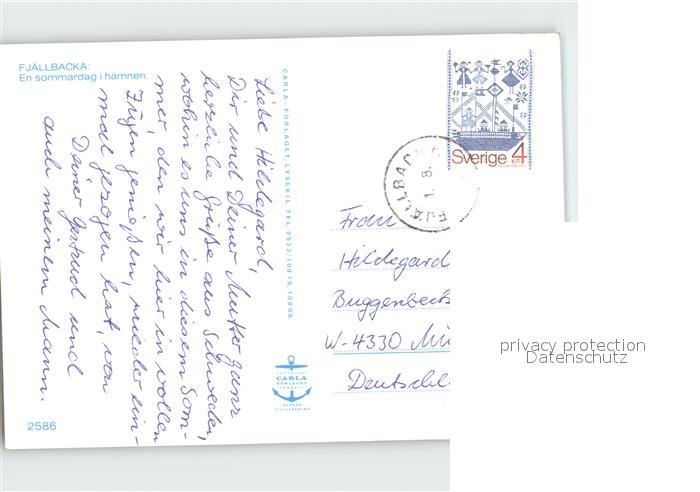 FJÄLLBACKA:
En sommardag i hamnen.
Liebe Hildegard,
Dir und Deiner Mutter ganz
herzliche Grüße aus Schweden,
wohin es uns in diesem Som-
mer, den wir hier in vollen
Zügen genießen, wieder ein-
mal gezogen hat, von
Deiner Gertrud und
auch meinem Mann.
CARLA-FÖRLAGET, LYSEKIL TEL. 0523/109 19, 109 09.
COPYRIGHT
CARLA
FÖRLAGET
LYSEKIL
SVENSK
TILLVERKNING
Sverige 4
KR
FJÄLLBACKA
1. 8.
Frau
Hildegard
Buggenbeck
W-4330 Mü
Deutschl
2586
privacy protection
Datenschutz